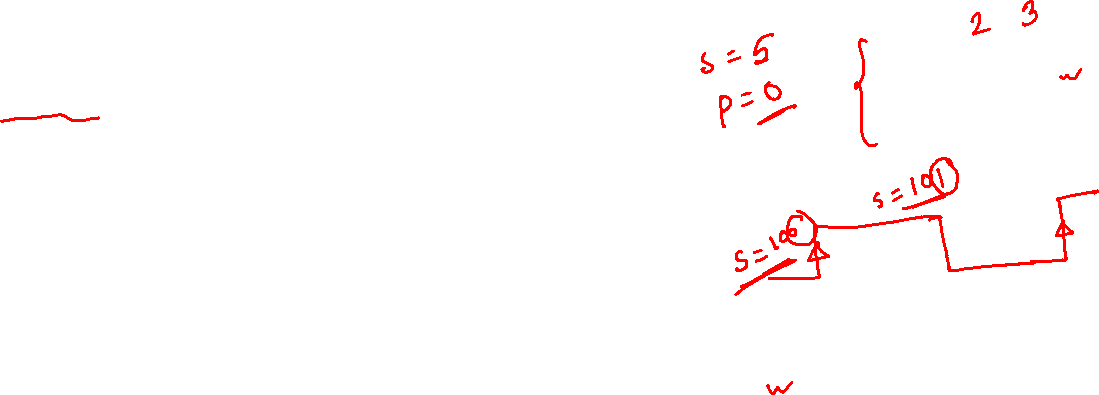 2 3
s = 5
w
p = 0
s = 101
s = 100
w